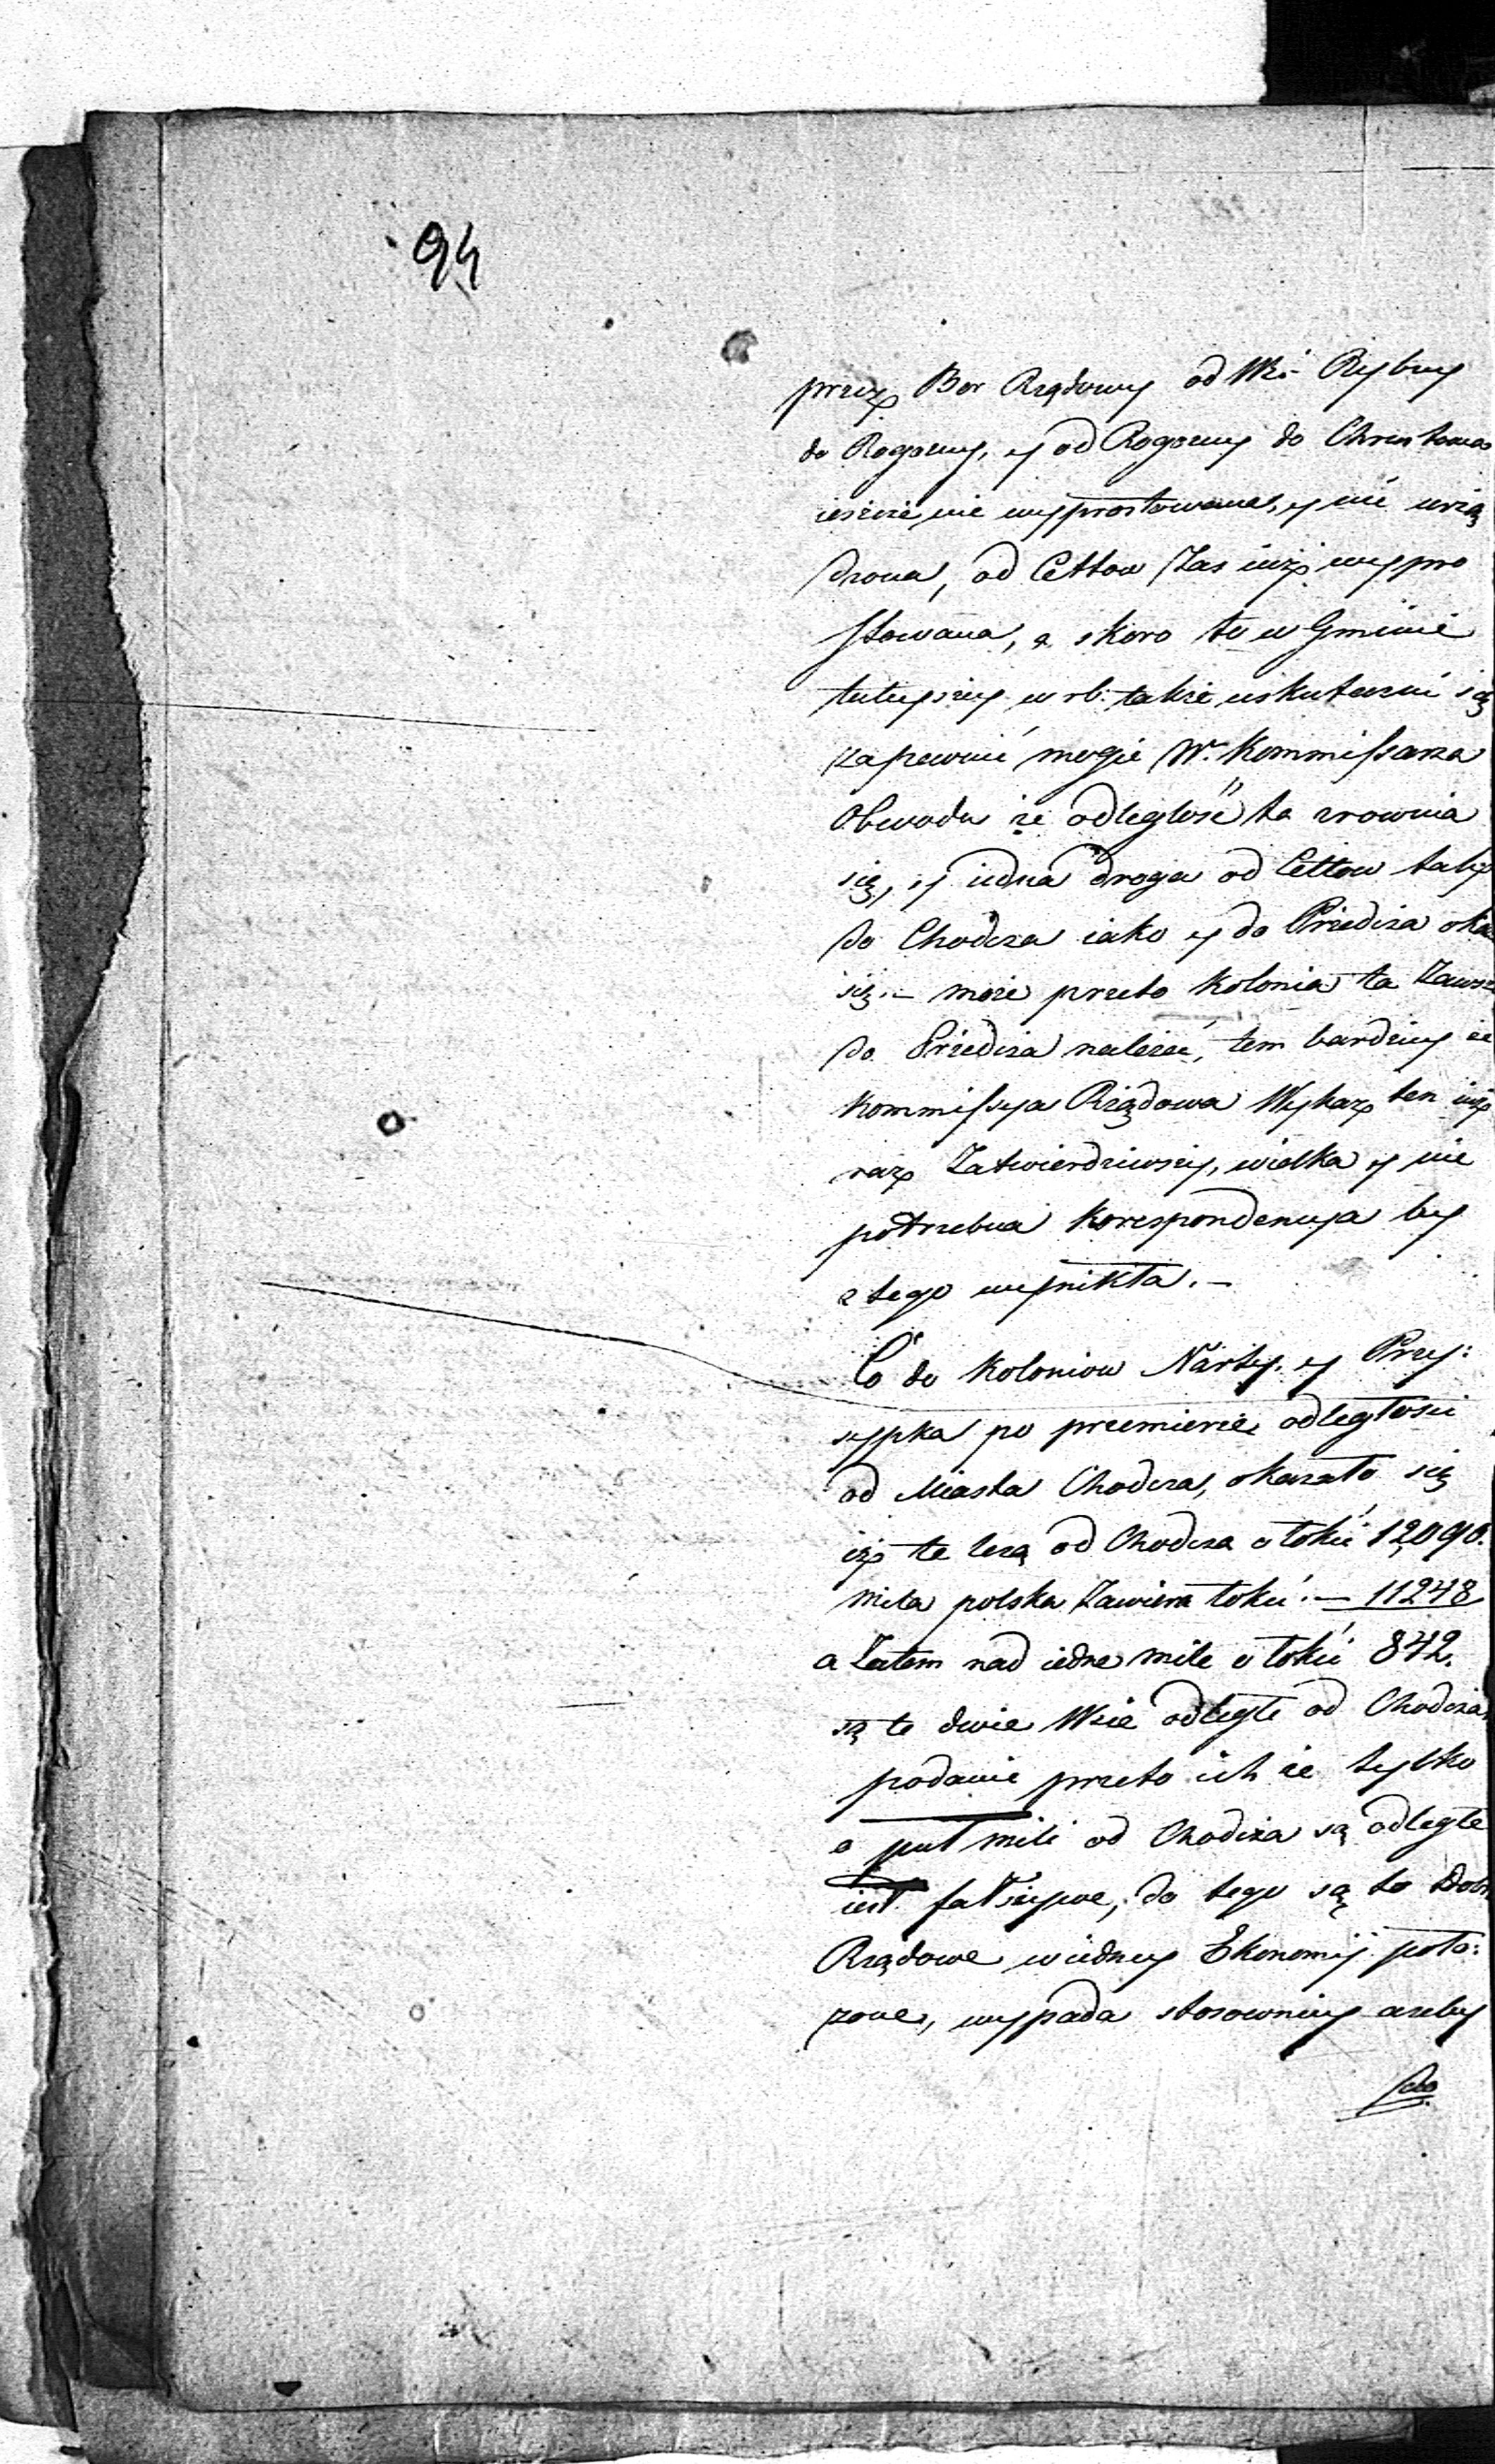 94
przez Bor Rządowy od Wsi Rybny
do Rogozny, y od Rogozny do
ieszcze nie wyprostowana, y nie urzą
dzona, od Cettow zas iuż wypro
stowana, a skoro to w Gminie
tuteyszey w rb: także uskuteczni się
zapewnić mogie W. Kommissarza
Obwodu że odległość ta zrownia
się, y iedna droga od Cettow tak
do Chodcza iako y do Przedcza oka
się.— może przeto Kolonia ta zawsz
do Przedcza należeć, tem bardziey że
Kommissyia Rządowa Wykaz ten iuż
raz zatwierdziwszy, wielka y nie
potrzebna korespondencyia by
z tego wynikła.—
Co do Koloniow Narty, y Przy:
sypka po przemierze odległosci
od Miasta Chodcza, okazało się
iż te leżą od Chodcza o łokci 12,090.
Mila polska zawiera łokci.— 11248
a Zatem nad iedne mile o łokci 842.
są te dwie Wsie odległe od Chodcza,
podanie przeto ich że tylko
o puł mili od Chodcza są odległe
iest fałszywe, do tego są to Dobr
Rządowe w iedney Ekonomij poło:
żone, wypada stosowniey azeby